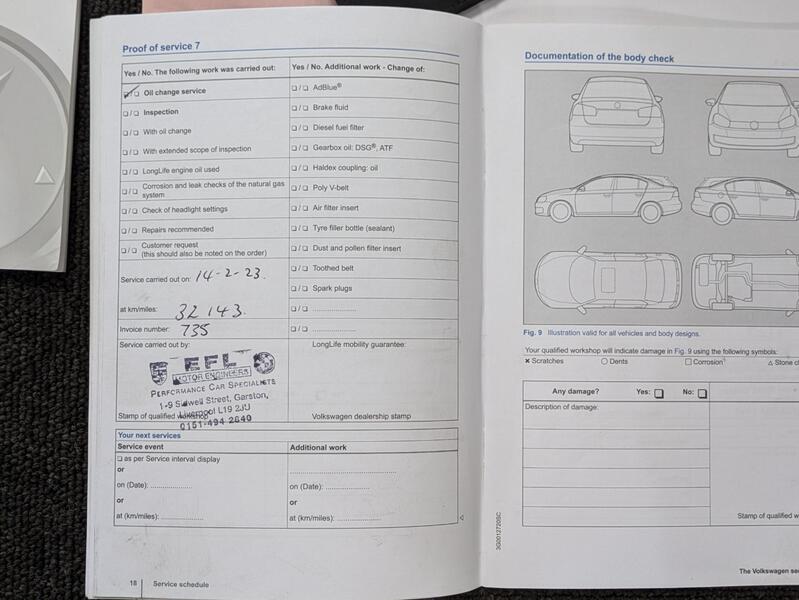 Proof of service 7
Yes / No. The following work was carried out:
Yes / No. Additional work - Change of:
❑ / ❑ Oil change service
❑ / ❑ AdBlue®
❑ / ❑ Inspection
❑ / ❑ Brake fluid
❑ / ❑ With oil change
❑ / ❑ Diesel fuel filter
❑ / ❑ With extended scope of inspection
❑ / ❑ Gearbox oil: DSG®, ATF
❑ / ❑ LongLife engine oil used
❑ / ❑ Haldex coupling: oil
❑ / ❑ Corrosion and leak checks of the natural gas
system
❑ / ❑ Poly V-belt
❑ / ❑ Check of headlight settings
❑ / ❑ Air filter insert
❑ / ❑ Repairs recommended
❑ / ❑ Tyre filler bottle (sealant)
❑ / ❑ Customer request
(this should also be noted on the order)
❑ / ❑ Dust and pollen filter insert
Service carried out on: 14-2-23.
❑ / ❑ Toothed belt
❑ / ❑ Spark plugs
at km/miles: 32 143.
❑ / ❑ ....................
Invoice number: 735
❑ / ❑ ....................
Service carried out by:
LongLife mobility guarantee:
EFL
MOTOR ENGINEERS
PERFORMANCE CAR SPECIALISTS
1-9 Sidwell Street, Garston,
Liverpool L19 2JU
0151-494 2640
Stamp of qualified workshop
Volkswagen dealership stamp
Your next services
Service event
Additional work
❑ as per Service interval display
or
on (Date): ....................
on (Date): ....................
or
or
at (km/miles): ....................
at (km/miles): ....................
18
Service schedule
Documentation of the body check
Fig. 9 Illustration valid for all vehicles and body designs.
Your qualified workshop will indicate damage in Fig. 9 using the following symbols:
✕ Scratches
○ Dents
□ Corrosion¹
△ Stone c
Any damage?
Yes: ❑
No: ❑
Description of damage:
Stamp of qualified w
3G0012720SC
The Volkswagen se